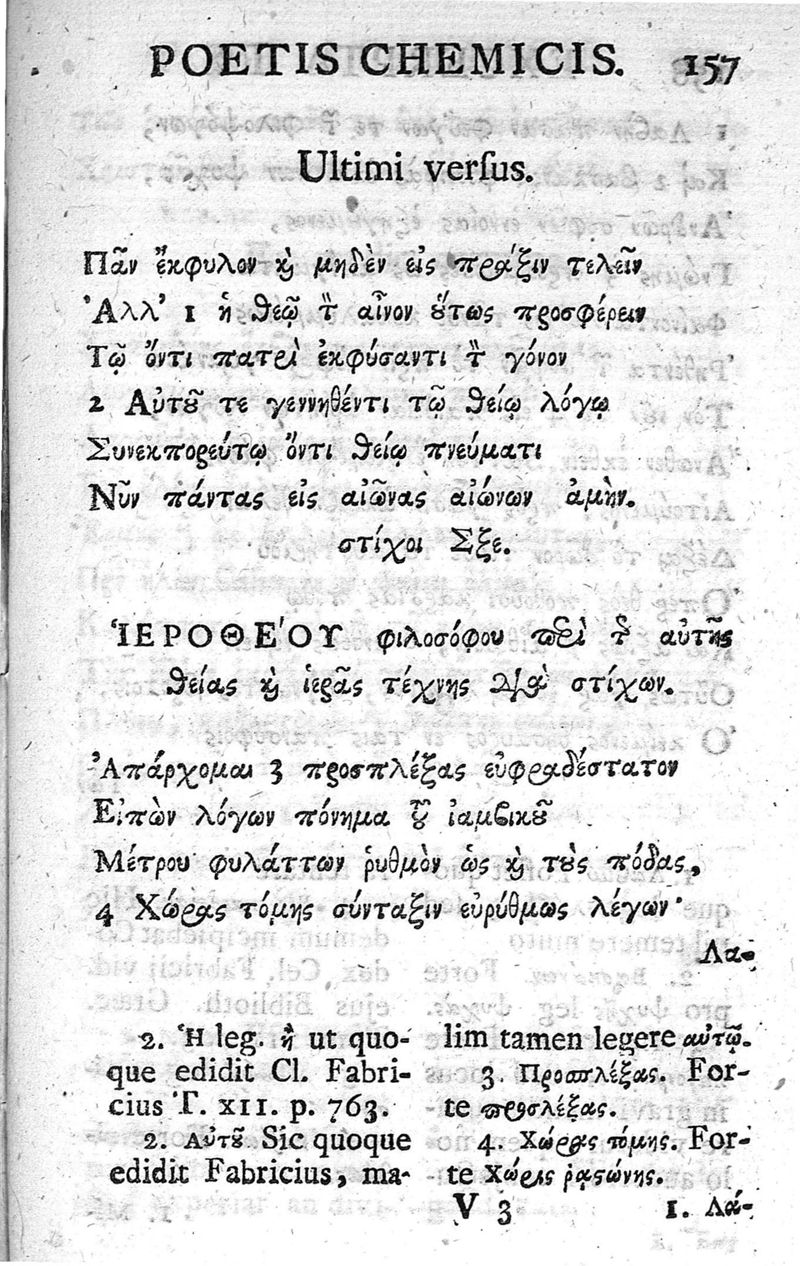 POETIS CHEMICIS. 157
Ultimi verſus.
Πᾶν ἔκφυλον ϗ μηδὲν εἰς πρᾶξιν τελεῖν
Ἀλλ' 1 ἢ θεῷ τ̀ αἶνον ȣ̔́τως προσφέρειν
Τῷ ὄντι πατρὶ ἐκφύσαντι τ̀ γόνον
2 Αὐτȣ͂ τε γεννηθέντι τῷ θείῳ λόγῳ
Συνεκπορεύτῳ ὄντι θείῳ πνεύματι
Νῦν πάντας εἰς αἰῶνας αἰώνων ἀμὴν.
στίχοι Σξε.
ἹΕΡΟΘΕ΄ΟΥ φιλοσόφου περὶ τ͂ αὐτῆς
θείας ϗ ἱερᾶς τέχνης διὰ στίχων.
Ἀπάρχομαι 3 προσπλέξας εὐφραδέστατον
Εἰπὼν λόγων πόνημα τȣ͂ ἰαμβικȣ͂
Μέτρου φυλάττων ῥυθμὸν ὡς ϗ τȣ̀ς πόδας,
4 Χώρας τόμης σύνταξιν εὐρύθμως λέγων·
Λα-
2. Ἢ leg. ἢ ut quo-
que edidit Cl. Fabri-
cius T. XII. p. 763.
2. Αυτȣ͂ Sic quoque
edidit Fabricius, ma-
lim tamen legere αὐτῷ.
3. Προσπλέξας. For-
te προσλέξας.
4. Χώρας τόμης. For-
te χώρις ῥαςώνης.
V 3
1. Λά-